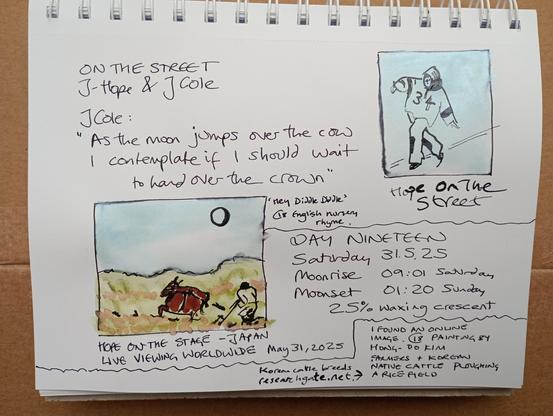 ON THE STREET
J-Hope & J Cole
J Cole:
"As the moon jumps over the cow
I contemplate if I should wait
to hand over the crown"
34
Hope On The
Street
'Hey Diddle Diddle'
English nursery
rhyme.
DAY NINETEEN
Saturday 31.5.25
Moonrise 09:01 Saturday
Moonset 01:20 Sunday
25% waxing crescent
HOPE ON THE STAGE - JAPAN
LIVE VIEWING WORLDWIDE May 31, 2025
I FOUND AN ONLINE
IMAGE. PAINTING BY
HONG-DO KIM
FARMERS + KOREAN
NATIVE CATTLE PLOUGHING
A RICE FIELD
Korean cattle breeds
researchgate.net.→